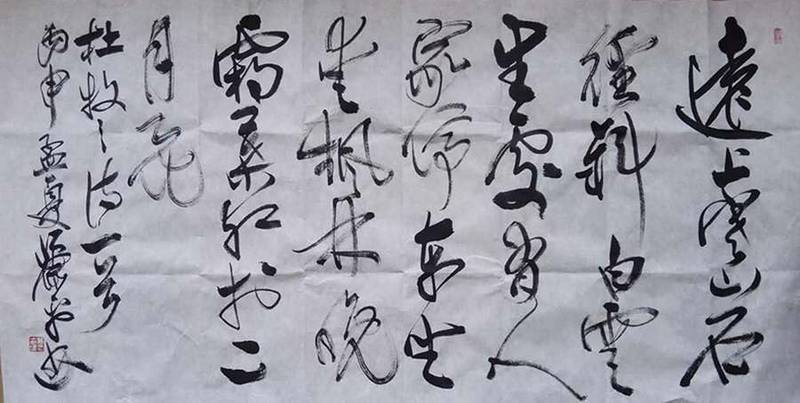 遠上寒山石
徑斜白雲
生處有人
家停車坐
愛楓林晚
霜葉紅於二
月花
杜牧之詩一首
丙申孟夏